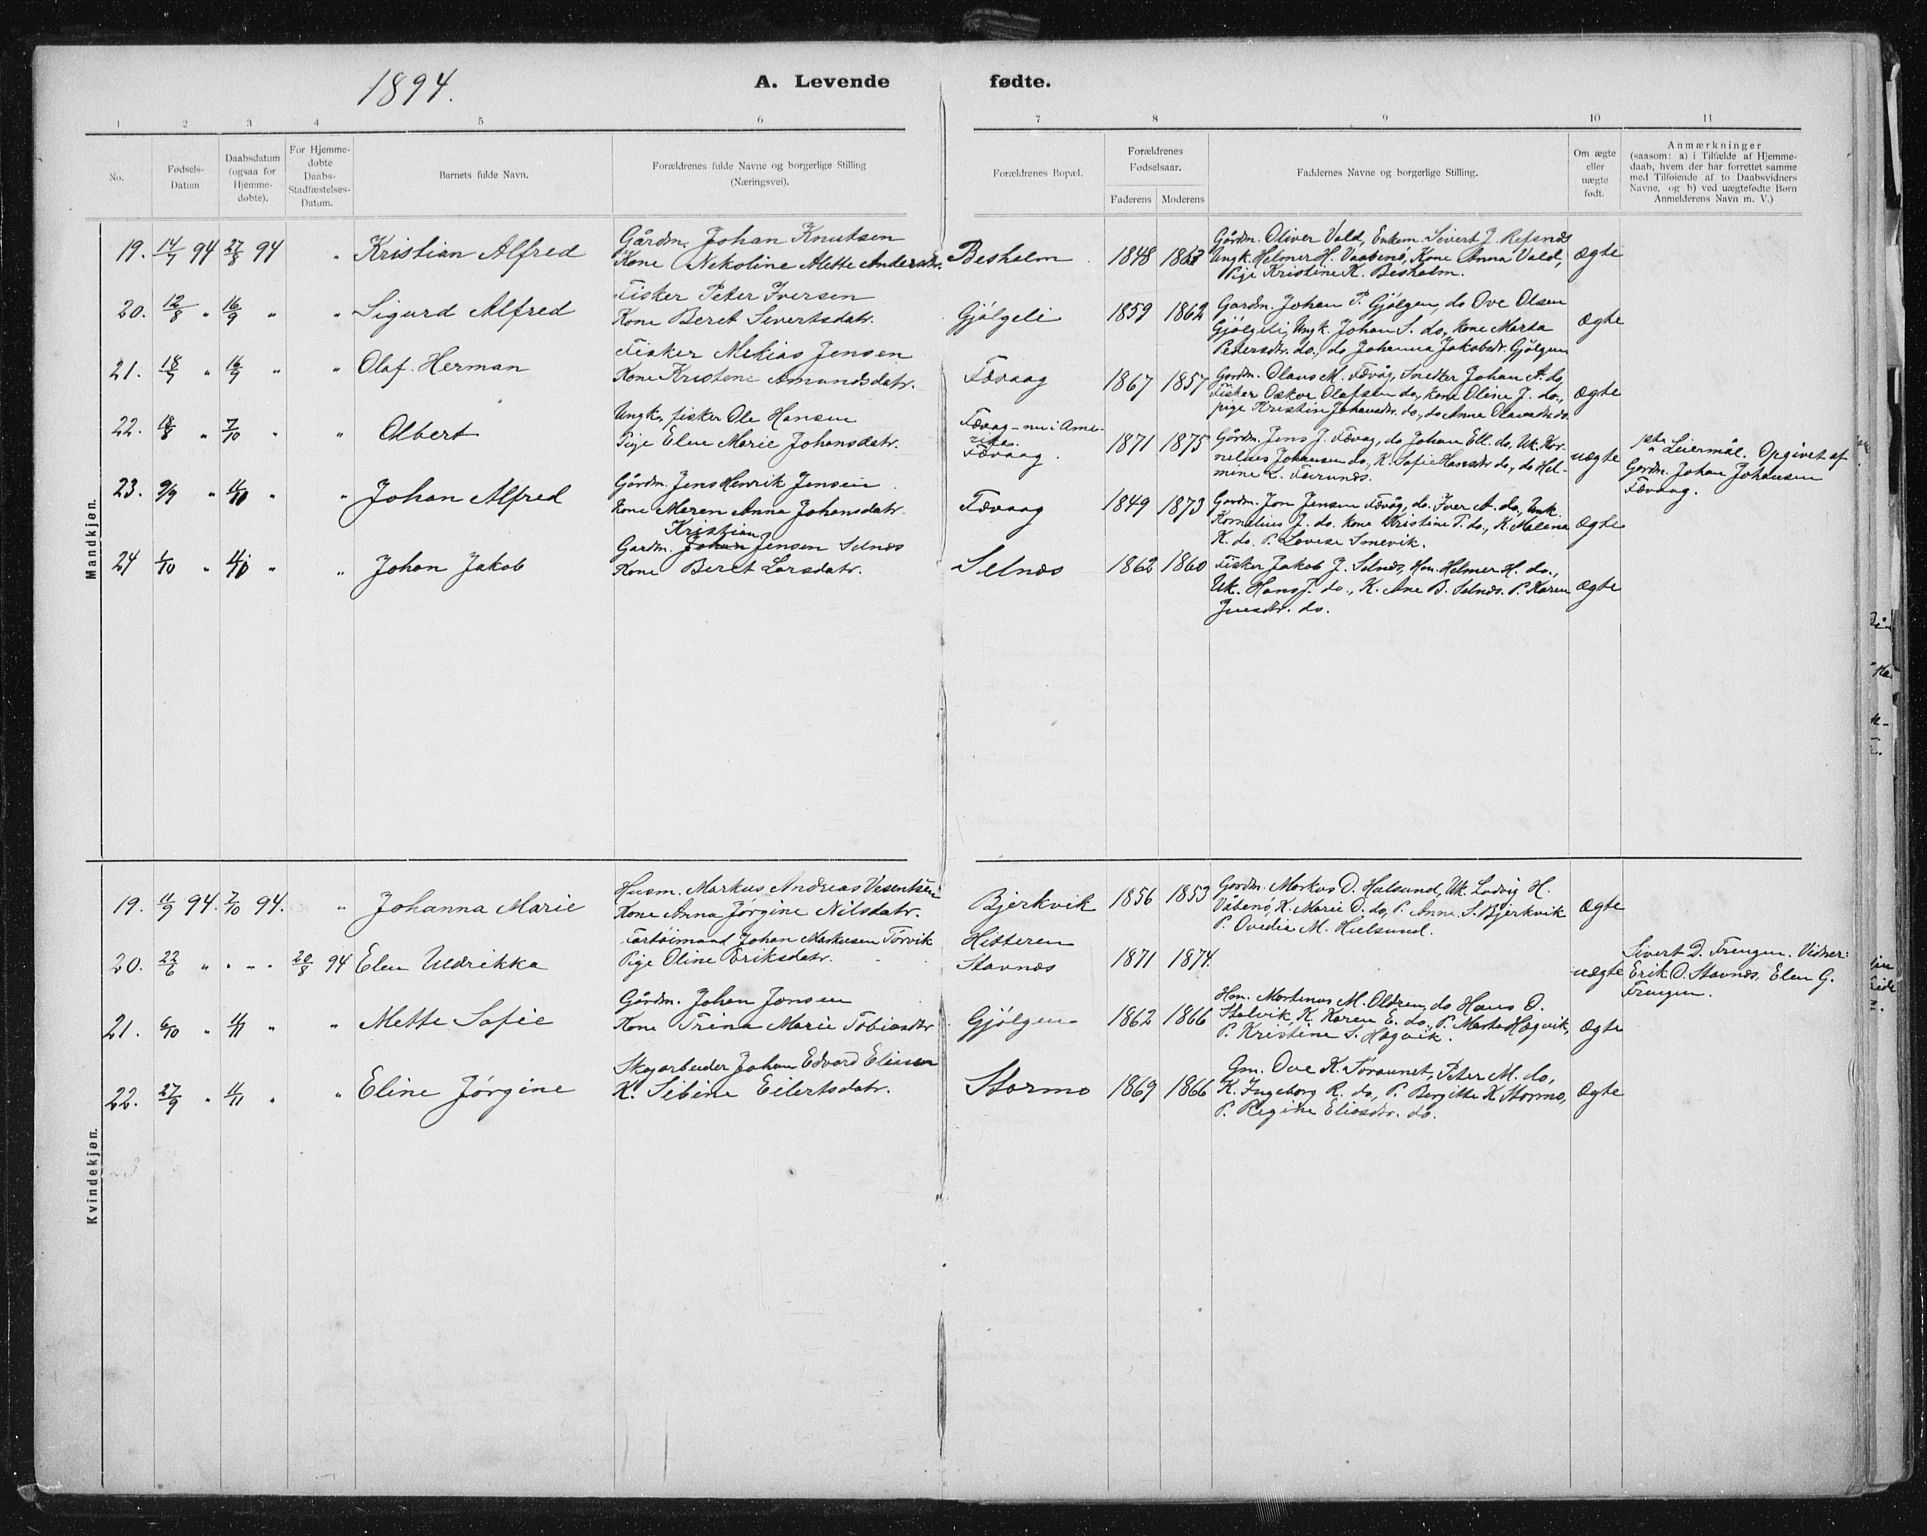 1894.
A. Levende fødte.
1 2 3 4 5 6 7 8 9 10 11
No.
Fødsels-
Datum
Daabsdatum
(ogsaa for
Hjemme-
døbte).
For Hjemme-
døbte
Daabs-
Stadfæstelses-
Datum.
Barnets fulde Navn.
Forældrenes fulde Navne og borgerlige Stilling
(Næringsvei).
Forældrenes Bopæl.
Forældrenes
Fødselsaar.
Faderens Moderens
Faddernes Navne og borgerlige Stilling.
Om ægte
eller
uægte
født.
Anmærkninger
(saasom: a) i Tilfælde af Hjemme-
daab, hvem der har forrettet samme
med Tilføiende af to Daabsvidners
Navne, og b) ved uægtefødte Børn
Anmelderens Navn m. V.)
Mandkjøn.
19. 14/7 94 27/8 94 " Kristian Alfred
Gårdm. Johan Knutsen
Kone Nekoline Alette Andersdtr.
Besholm 1848 1863
Gårdm. Oliver Vold, Enkem. Sivert J. Refsnæs
Ungk. Helmer H. Vaabenø, Kone Anna Vold,
Pige Kristine K. Besholm.
Ægte
20. 12/8 " 16/9 " " Sigurd Alfred
Fisker Peter Iversen
Kone Beret Sivertsdatr.
Gjølgeli 1859 1862
Gardm. Johan P. Gjølgen, do Ove Olsen
Gjølgeli, Ungk. Johan S. do, Kone Marta
Pedersdtr. do, do Johanna Jakobsdtr. Gjølgen
Ægte
21. 18/7 " 16/9 " " Olaf Herman
Fisker Mekias Jensen
Kone Kristene Amundsdatr.
Fævaag 1867 1857
Gardm. Olaus M. Fævåg, Snedker Johan A. do,
Fisker Oskar Olafsen do, Kone Oline J. do,
pige Kristin Johansdtr. do, do Anne
Ægte
22. 18/8 " 7/10 " " Albert
Ungk. fisker Ole Hansen
Pige Elen Marie Johansdatr.
Fævag - nu i Ame-
rika.
Fævaag. 1871 1875
Gårdm. Jens J. Fævåg, do Johan Ell. do, Uk. Kor-
nelius Johansen do, K. Sofie Hansdtr do, do Hel-
mine L.
uægte
Leiermål. Opgivet af
Gardm. Johan Johansen
Fævaag.
23. 9/9 " 4/11 " " Johan Alfred
Gårdm. Jens Henrik Jensen
Kone Maren Anna Johansdatr.
Fævaag 1849 1873
Gardm. Jon Jensen Fævåg, do. Iver A. do, Ungk.
Kornelius J. do. Kone Kristine P. do, K. Malena
K. do. P. Lovise Smevik.
Ægte
Kristian
24 1/10 " 4/11 " " Johan Jakob
Gardm. Johan Jensen Selnæs
Kone Beret Larsdatr.
Selnæs 1862 1860
Fisker Jakob J. Selnæs, Hm. Helmer H. do.,
Uk. Hans J. do., K. Ane B. Selnæs. P. Karen
Jensdtr. do.
Ægte
Kvindekjøn.
19. 11/9 94. 7/10 94. " Johanna Marie
Husm. Markus Andreas Vesentsen
Kone Anna Jørgine Nilsdatr.
Bjerkvik 1856 1853
Gardm. Markus D. Hulsund, Uk. Ludvig H.
Våbenø, K. Marie D. do, P. Anne S. Bjerkvik
P. Ovedia M. Hulsund.
Ægte
20. 22/6 " " " 20/8 94 Elen Uldrikka
Fartøimand Johan Markusen Torvik
Pige Oline Eriksdatr.
Hitteren
Stavnæs 1871 1874.
uægte
Sivert D. Frengen. Vidner:
Erik O. Stavnæs, Elen G.
Frengen.
21. 6/10 " 4/11 " " Mette Sofie
Gårdm. Johan Jonsen
Kone Trina Marie Tobiasdtr
Gjølgen 1862 1866
Hm. Martinus M. Oldren, do Hans O.
Stølvik, K. Karen E. do, P. Marta Høgvik,
P. Kristine S. Høgvik.
Ægte
22. 27/9 " 4/11 " " Eline Jørgine
Skogarbeider Johan Edvard Eliasen
K. Sibine Eilertsdatr.
Stormo 1869 1866
Gm. Ove K. Søraunet, Peter M. do,
K. Ingeborg R. do, P. Bergitte K. Stormo,
P. Regine Eliasdtr. do.
Ægte